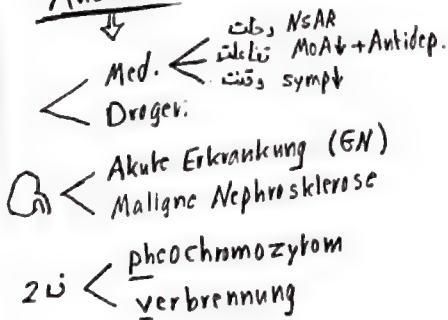 Med.
وحلت NSAR
تفاعلت MoA↓ + Antidep.
وقفت symp↓
Drogen
Akute Erkrankung (GN)
Maligne Nephrosklerose
2 ن
pheochromozytom
verbrennung